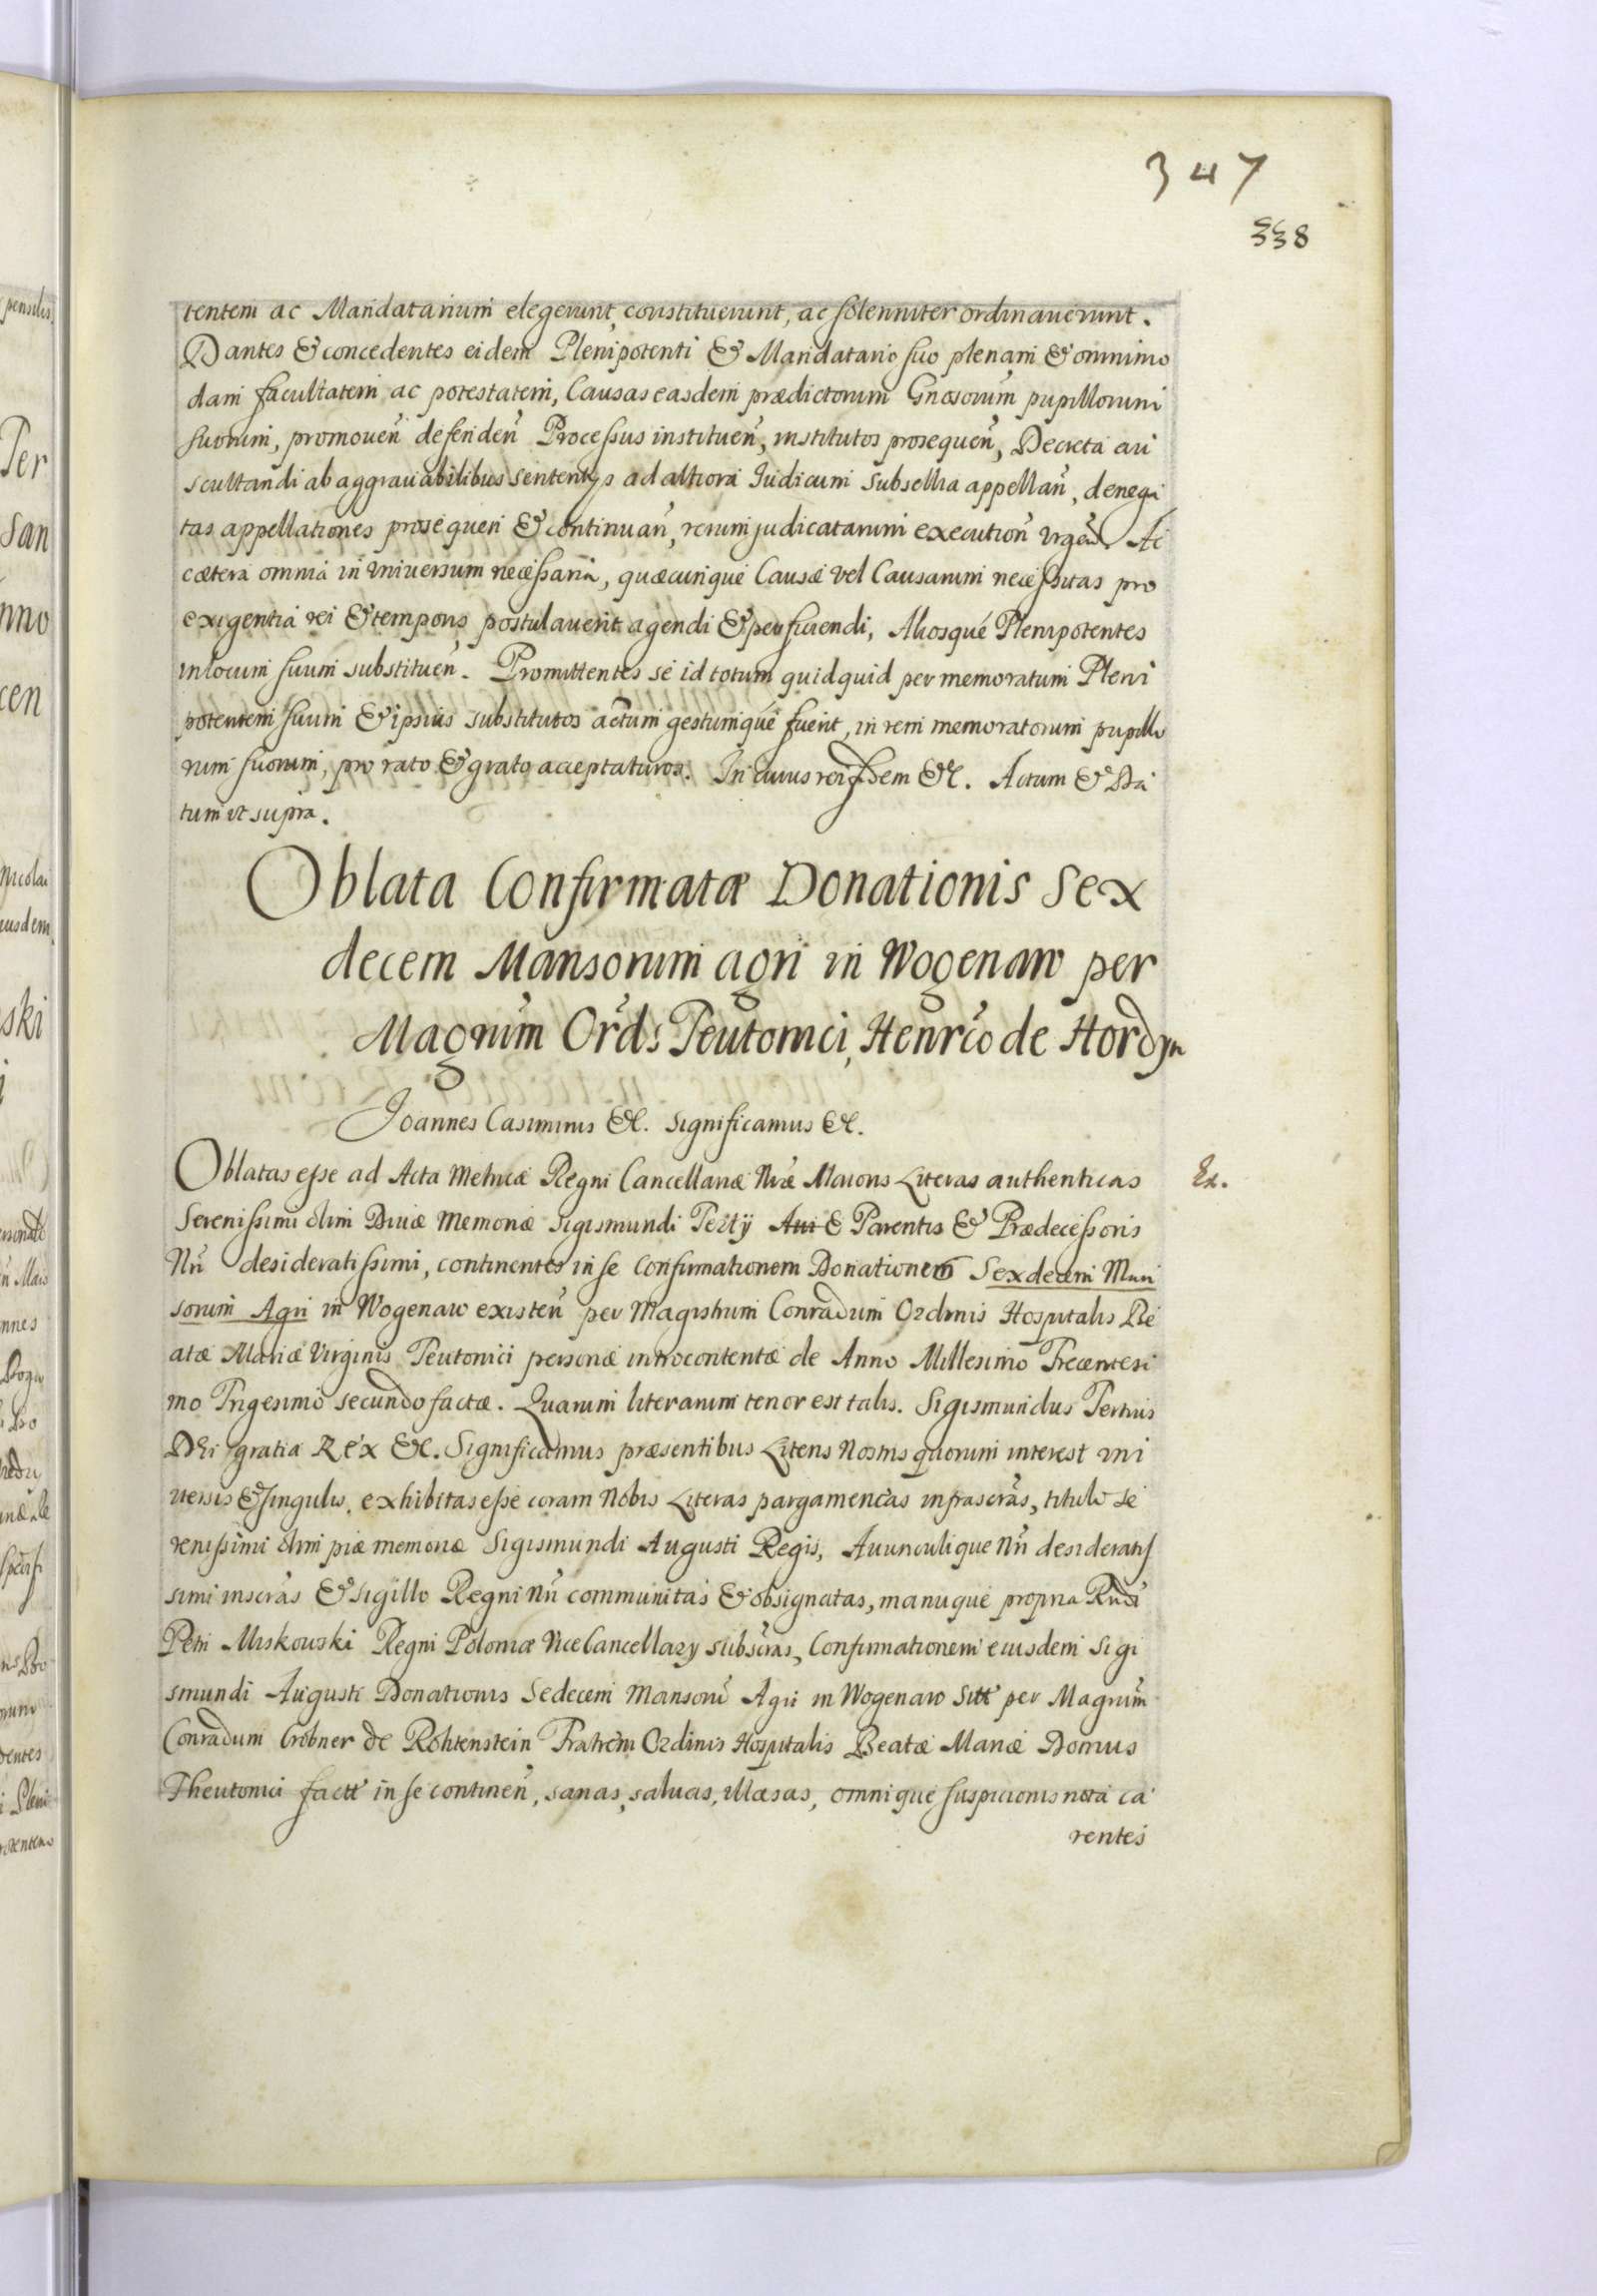 347
338
tentem ac Mandatarium elegerunt, constituerunt, ac solenniter ordinaverunt.
Dantes & concedentes eidem Plenipotenti & Mandatario suo plenam & omnimo
dam facultatem ac potestatem, Causas easdem prædictorum Gnosorum̃ pupillorum
suorum, promoueñ defendeñ Processus instituen̄, institutos prosequen̄, Decreta au
scultandi ab aggrauabilibus sententys ad altiora Iudicum subsellia appellan̄, denega
tas appellationes prosequen & continuan̄, rerum judicatarum execution̄ vrgen̄. Ac
cætera omnia in vniversum necessaria, quæcunque Causæ vel Causarum necessitas pro
exigentia rei & temporis postulauerit agendi & perficiendi, Aliosque Plenipotentes
in locum suum substituen̄. Promittentes se id totum quidquid per memoratum Pleni
potentem suum & ipsius substitutos actum gestumque fuerit, in rem memoratorum pupillo
rum suorum, pro rato & grato accepturos. In cuius rei fidem &c. Actum & Da
tum vt supra.
Oblata Confirmatæ Donationis Sex
decem Mansorum agri in Wogenaw per
Magrum̃ Ord̃s Teutonici, Henrico de Hordyn
Joannes Casimirus &c. Significamus &c.
Oblatas esse ad Acta Metricæ Regni Cancellariæ Nræ Maioris Literas authenticas
Ex.
Serenissimi olim Diuæ Memoriæ Sigismundi Tertÿ Aui & Parentis & Prædecessoris
Nri desideratissimi, continentes in se Confirmationem Donationem Sexdecem Man
sorum Agri in Wogenaw existen̄ per Magistrum Conradum Ordinis Hospitalis Be
atæ Mariæ Virginis Teutonici personæ introcontentæ de Anno Millesimo Trecentesi
mo Trigesimo secundo factæ. Quarum literarum tenor est talis. Sigismundus Tertius
Dei gratia Rex &c. Significamus præsentibus Literis Nostris quorum interest vni
uersis & singulis, exhibitas esse coram Nobis Literas pargamenẽas infrascr̃as, titulo Se
renissimi olim piæ memoriæ Sigismundi Augusti Regis, Auunculique Nri desideratis
simi inscr̃as & sigillo Regni Nri communitas & obsignatas, manuque propria Rndi
Petri Miskouski Regni Poloniæ ViceCancellary subscr̃as, Confirmationem eiusdem Sigi
smundi Augusti Donationis Sedecem Mansorũ Agri in Wogenaw sitt per Magrum̃
Conradum Grobner de Rohtenstein Fratrem Ordinis Hospitalis Beatæ Mariæ Domus
Theutonici factt in se continen̄, sanas, saluas, illæsas, omnique suspicionis nota ca
rentes